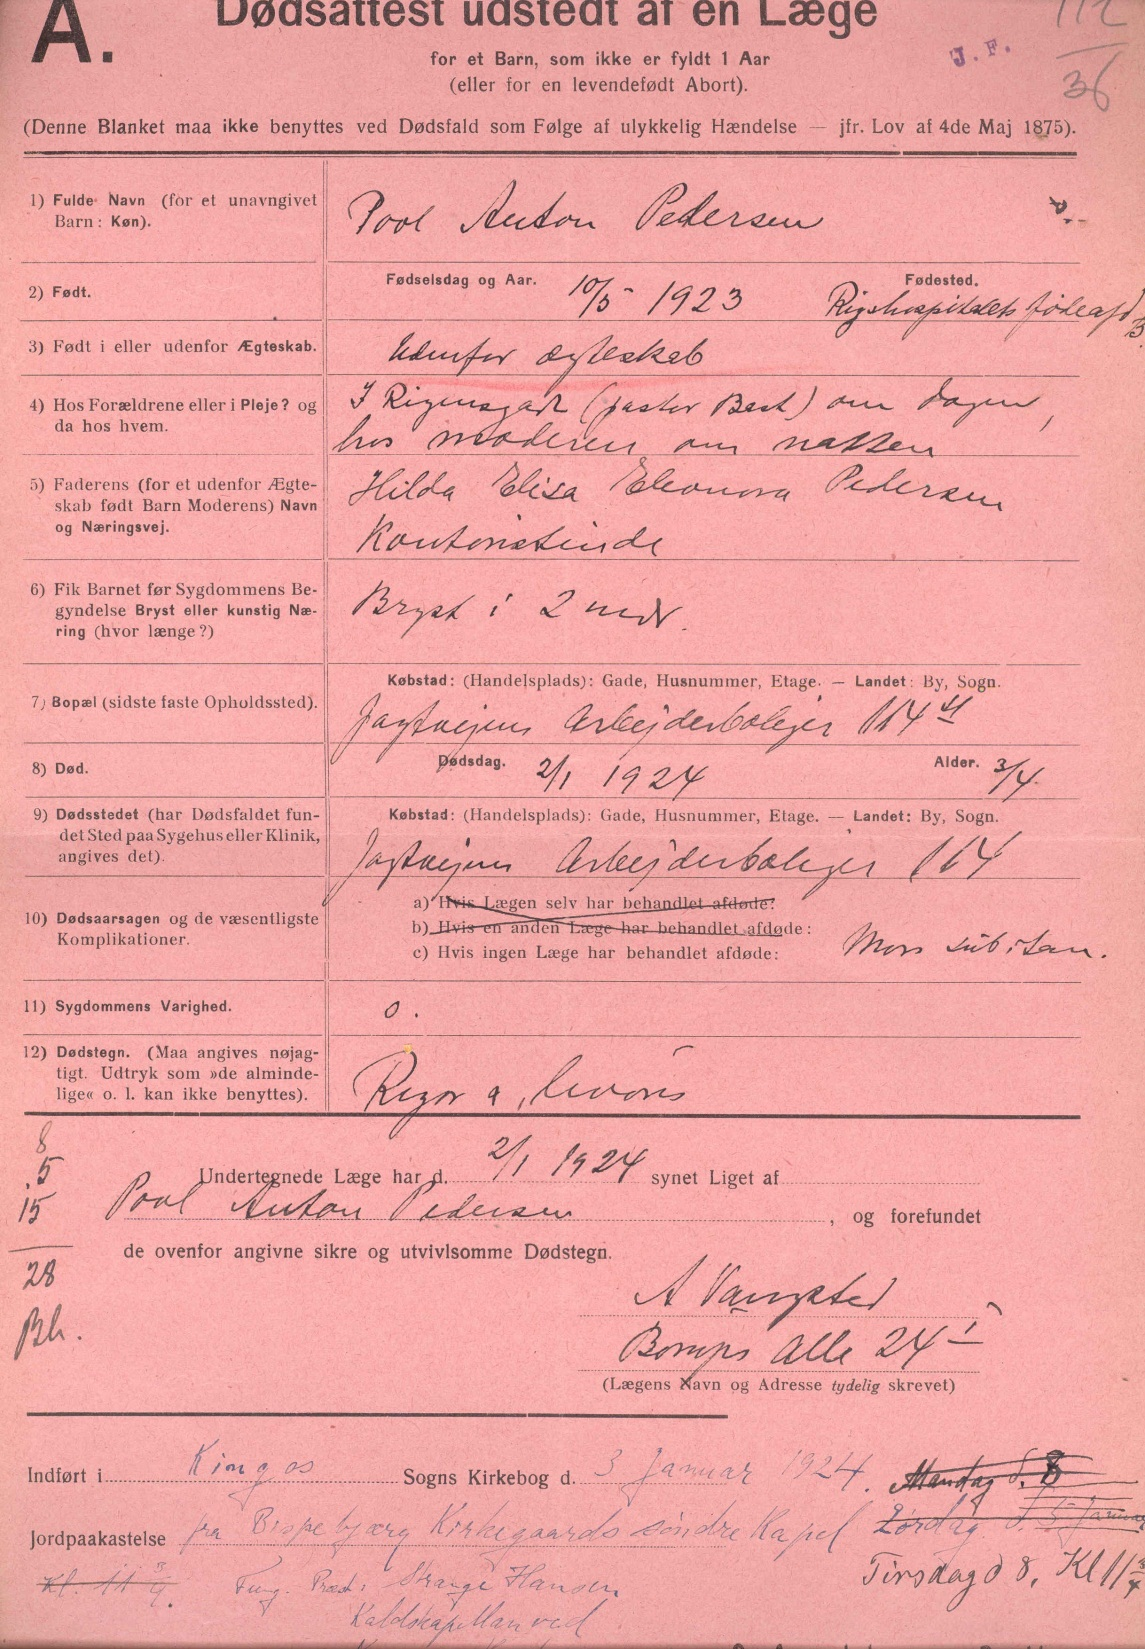 A.
Dødsattest udstedt af en Læge
112
36
J. F.
for et Barn, som ikke er fyldt 1 Aar
(eller for en levendefødt Abort).
(Denne Blanket maa ikke benyttes ved Dødsfald som Følge af ulykkelig Hændelse — jfr. Lov af 4de Maj 1875).
1) Fulde Navn (for et unavngivet
Barn: Køn).
Povl Anton Pedersen
2) Født.
Fødselsdag og Aar. 10/5 1923
Fødested. Rigshospitalets fødeafd
3) Født i eller udenfor Ægteskab.
Udenfor ægteskab
4) Hos Forældrene eller i Pleje? og
da hos hvem.
I Rigensgade (pastor Bast) om dagen,
hos moderen om natten
5) Faderens (for et udenfor Ægte-
skab født Barn Moderens) Navn
og Næringsvej.
Hilda Elisa Eleonora Pedersen
Kontoristinde
6) Fik Barnet før Sygdommens Be-
gyndelse Bryst eller kunstig Næ-
ring (hvor længe?)
Bryst i 2 mdr.
7) Bopæl (sidste faste Opholdssted).
Købstad: (Handelsplads): Gade, Husnummer, Etage. — Landet: By, Sogn.
Jagtvejens Arbejderboliger 114 st
8) Død.
Dødsdag. 2/1 1924
Alder. 3/4
9) Dødsstedet (har Dødsfaldet fun-
det Sted paa Sygehus eller Klinik,
angives det).
Købstad: (Handelsplads): Gade, Husnummer, Etage. — Landet: By, Sogn.
Jagtvejens Arbejderboliger 114
10) Dødsaarsagen og de væsentligste
Komplikationer.
a) Hvis Lægen selv har behandlet afdøde:
b) Hvis en anden Læge har behandlet afdøde:
c) Hvis ingen Læge har behandlet afdøde:
Mors subitan.
11) Sygdommens Varighed.
0.
12) Dødstegn. (Maa angives nøjag-
tigt. Udtryk som »de alminde-
lige« o. l. kan ikke benyttes).
Rigor &, livores
8
.5
15
28
Bh.
Undertegnede Læge har d. 2/1 1924 synet Liget af
Povl Anton Pedersen, og forefundet
de ovenfor angivne sikre og utvivlsomme Dødstegn.
A Vangsted
Borups Alle 24 I
(Lægens Navn og Adresse tydelig skrevet)
Indført i Kingos Sogns Kirkebog d. 3 Januar 1924.
Mandag d. 8
Jordpaakastelse fra Bispebjærg Kirkegaards søndre Kapel
Lørdag d. 5 Januar
Kl. 11 3/4.
Fung. Præst: Strange Hansen
Tirsdag d 8. Kl 11 3/4
Kaldskapellan ved